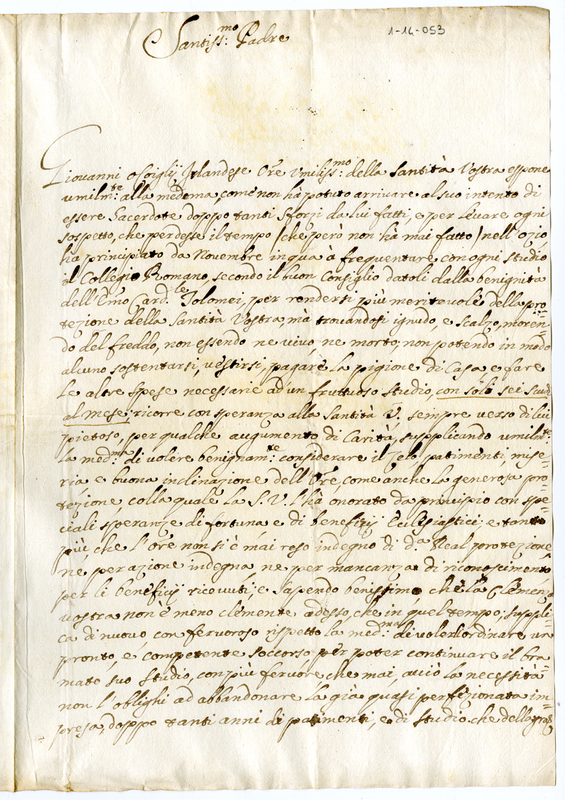 Santiss:mo Padre
1-16-053
Giovanni Irlandese Ore Umiliss:mo della Santità Vostra espone
umilm:te alla medema, come non hà potuto arrivare al suo intento di
essere Sacerdote doppo tanti sforzi da lui fatti, e per levare ogni
sospetto, che perdesse il tempo (che però non hà mai fatto) nell'ozio
hà principiato da Novembre in quà à frequentare con ogni studio
il Collegio Romano, secondo il buon Consiglio datoli dalla benignità
dell'Emo Card:le Tolomei, per rendersi più meritevole della pro=
tezione della Santità Vostra, mà trovandosi ignudo, e scalzo, moren=
do del freddo, non essendo ne vivo, ne morto, non potendo in modo
alcuno sostentarsi, vestirsi, pagare la pigione di Casa, e fare
le altre spese necessarie ad'un fruttuoso studio, con soli sei scudi
al mese; ricorre con speranza alla Santità V. sempre verso di lui
pietoso, per qualche augumento di Carità, supplicando umilm:te
la med:ma di volere benignam:te considerare il zelo, patimenti, mise=
ria e buona inclinazione dell'Ore, come anche la generosa pro=
tezione, colla quale la S. V. l'hà onorato da principio con spe=
ciali speranze di fortuna, e di beneficij Ecclesiastici; e tanto
più che l'Ore non si è mai reso indegno di d:a Real protezione
ne per azione indegna, ne per mancanza di riconoscimento
per li beneficij ricevuti; e sapendo benissimo che la Clemenza
vostra non è meno clemente adesso, che in quel tempo; suppli=
ca di nuovo con fervoroso rispetto la med:ma di voler'ordinare un
pronto, e competente soccorso per poter continuare il bra=
mato suo studio, con più fervore che mai, acciò la necessità
non l'oblighi ad abbandonare la già quasi perfezionata im=
presa, doppo tanti anni di patimenti, e di studio che della